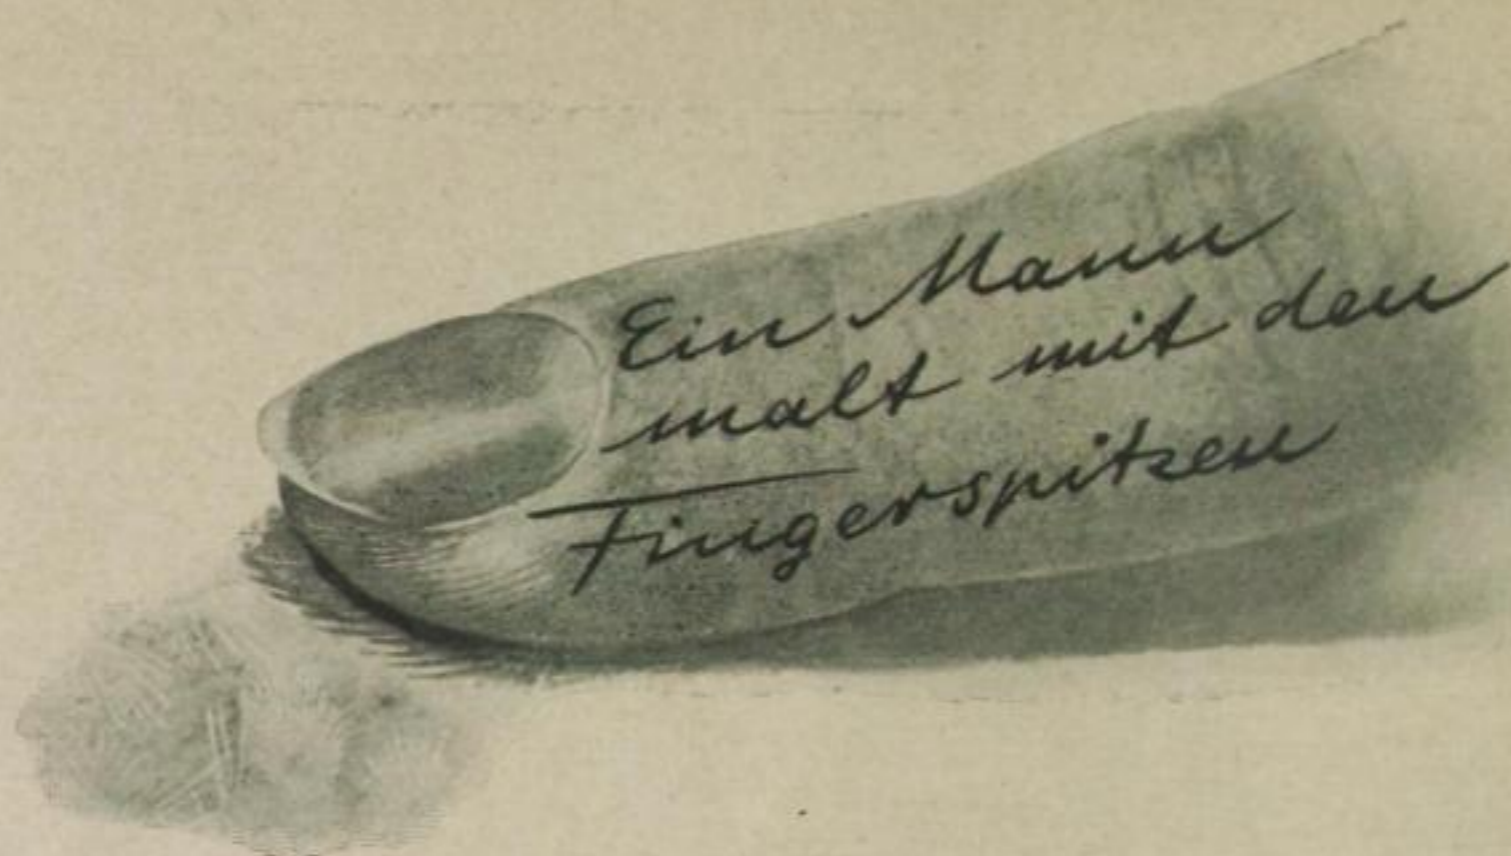 Ein Mann
malt mit den
Fingerspitzen